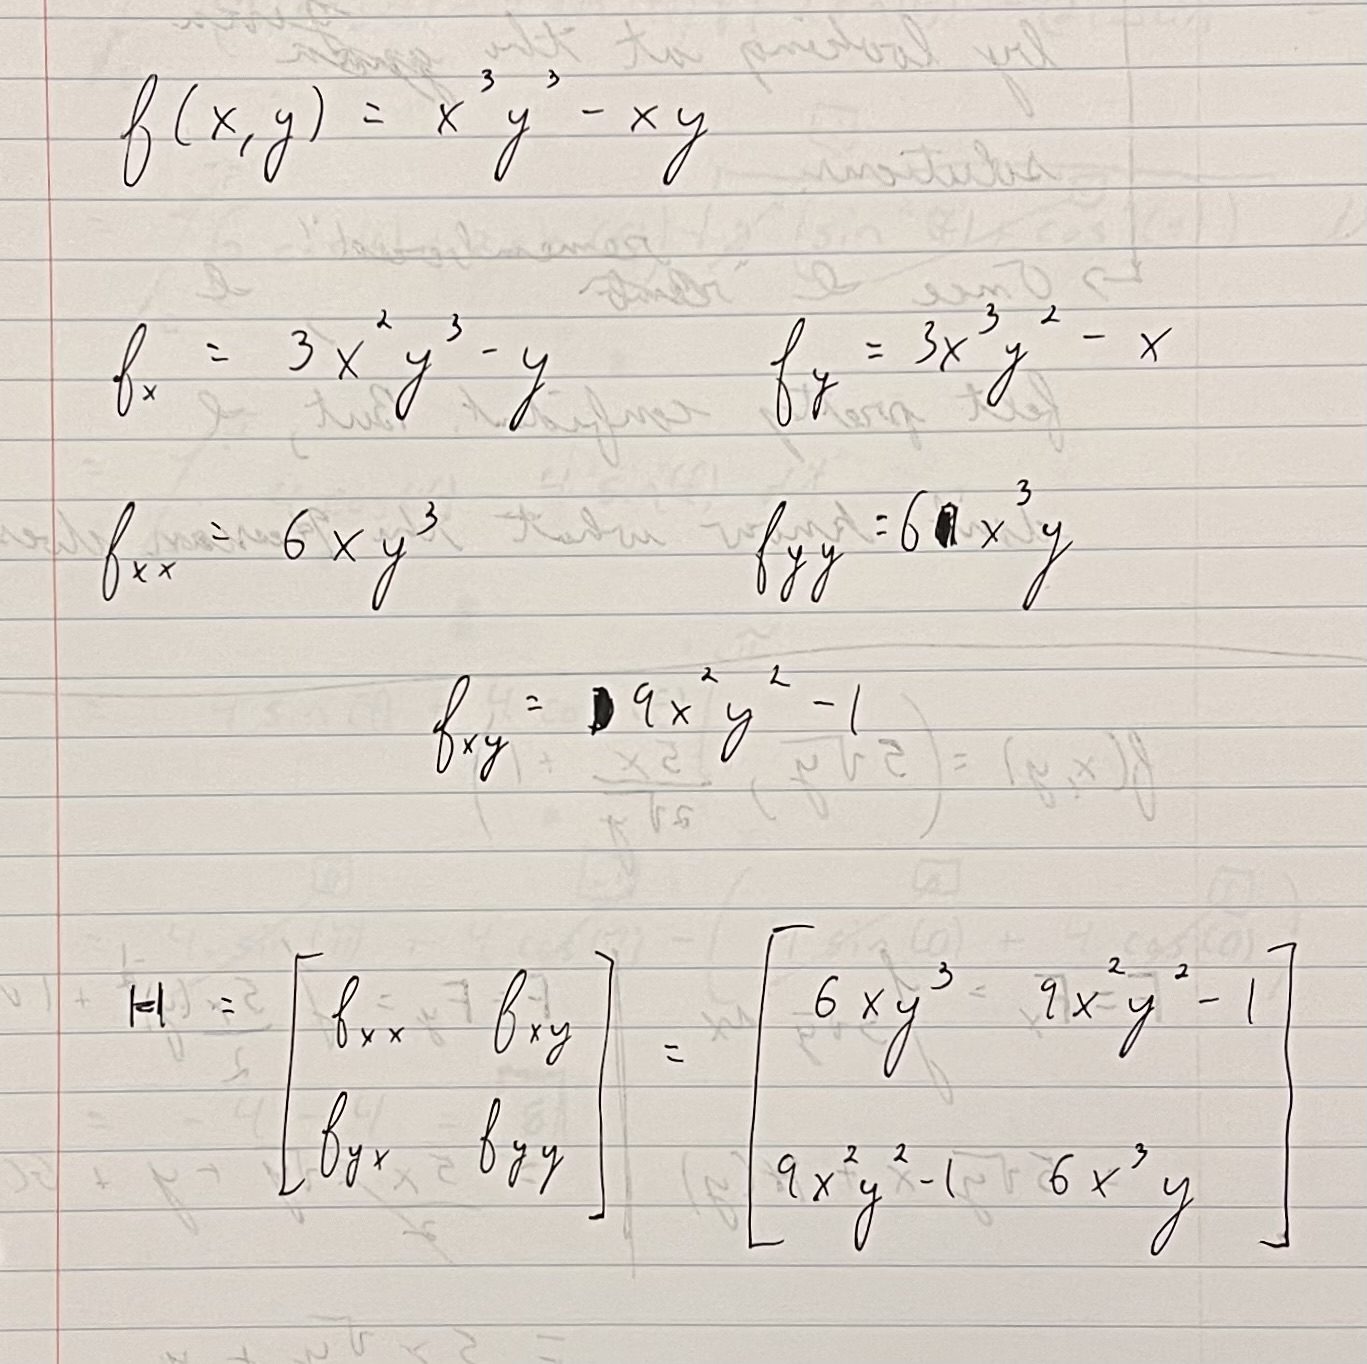 f(x,y) = x³y³ - xy
fx = 3x²y³ - y    fy = 3x³y² - x
fxx = 6xy³    fyy = 6x³y
fxy = 9x²y² - 1
H = [fxx fxy; fyx fyy] = [6xy³ 9x²y² - 1; 9x²y² - 1 6x³y]